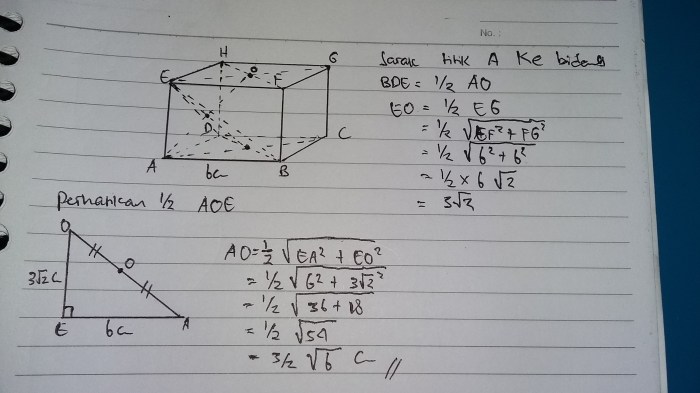 No.:
H
G
O
E
F
D
C
A
B
6c
Jarak titik A ke bidang
BDE = 1/2 AO
EO = 1/2 EG
= 1/2 √EF² + FG²
= 1/2 √6² + 6²
= 1/2 × 6 √2
= 3√2
Perhatikan 1/2 AOE
O
O
3√2 c
E
6c
A
AO = 1/2 √EA² + EO²
= 1/2 √6² + 3√2²
= 1/2 √36 + 18
= 1/2 √54
= 3/2 √6 C //